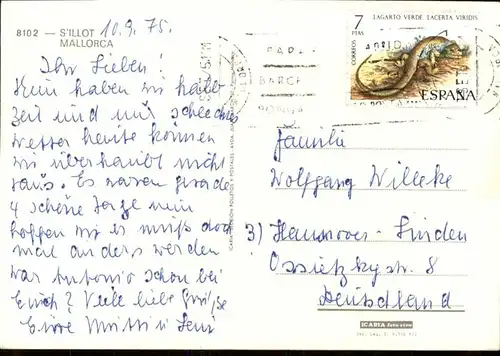 8102 — S'ILLOT
MALLORCA
10.9.75.
Ihr Lieben!
Nun haben wir halb
Zeit und nur schlechtes
Wetter heute können
wir überhaupt nicht
raus. Es waren gerade
4 schöne Tage nun
hoffen wir es muß doch
mal anders werden
war Antonio schon bei
Euch? Viele liebe Grüße
Eure Mutti u.
7
PTAS
LAGARTO VERDE. LACERTA VIRIDIS
CORREOS
ESPAÑA
Familie
Wolfgang Willeke
3) Hannover-Linden
Ossietzkystr. 8
Deutschland
ICARIA